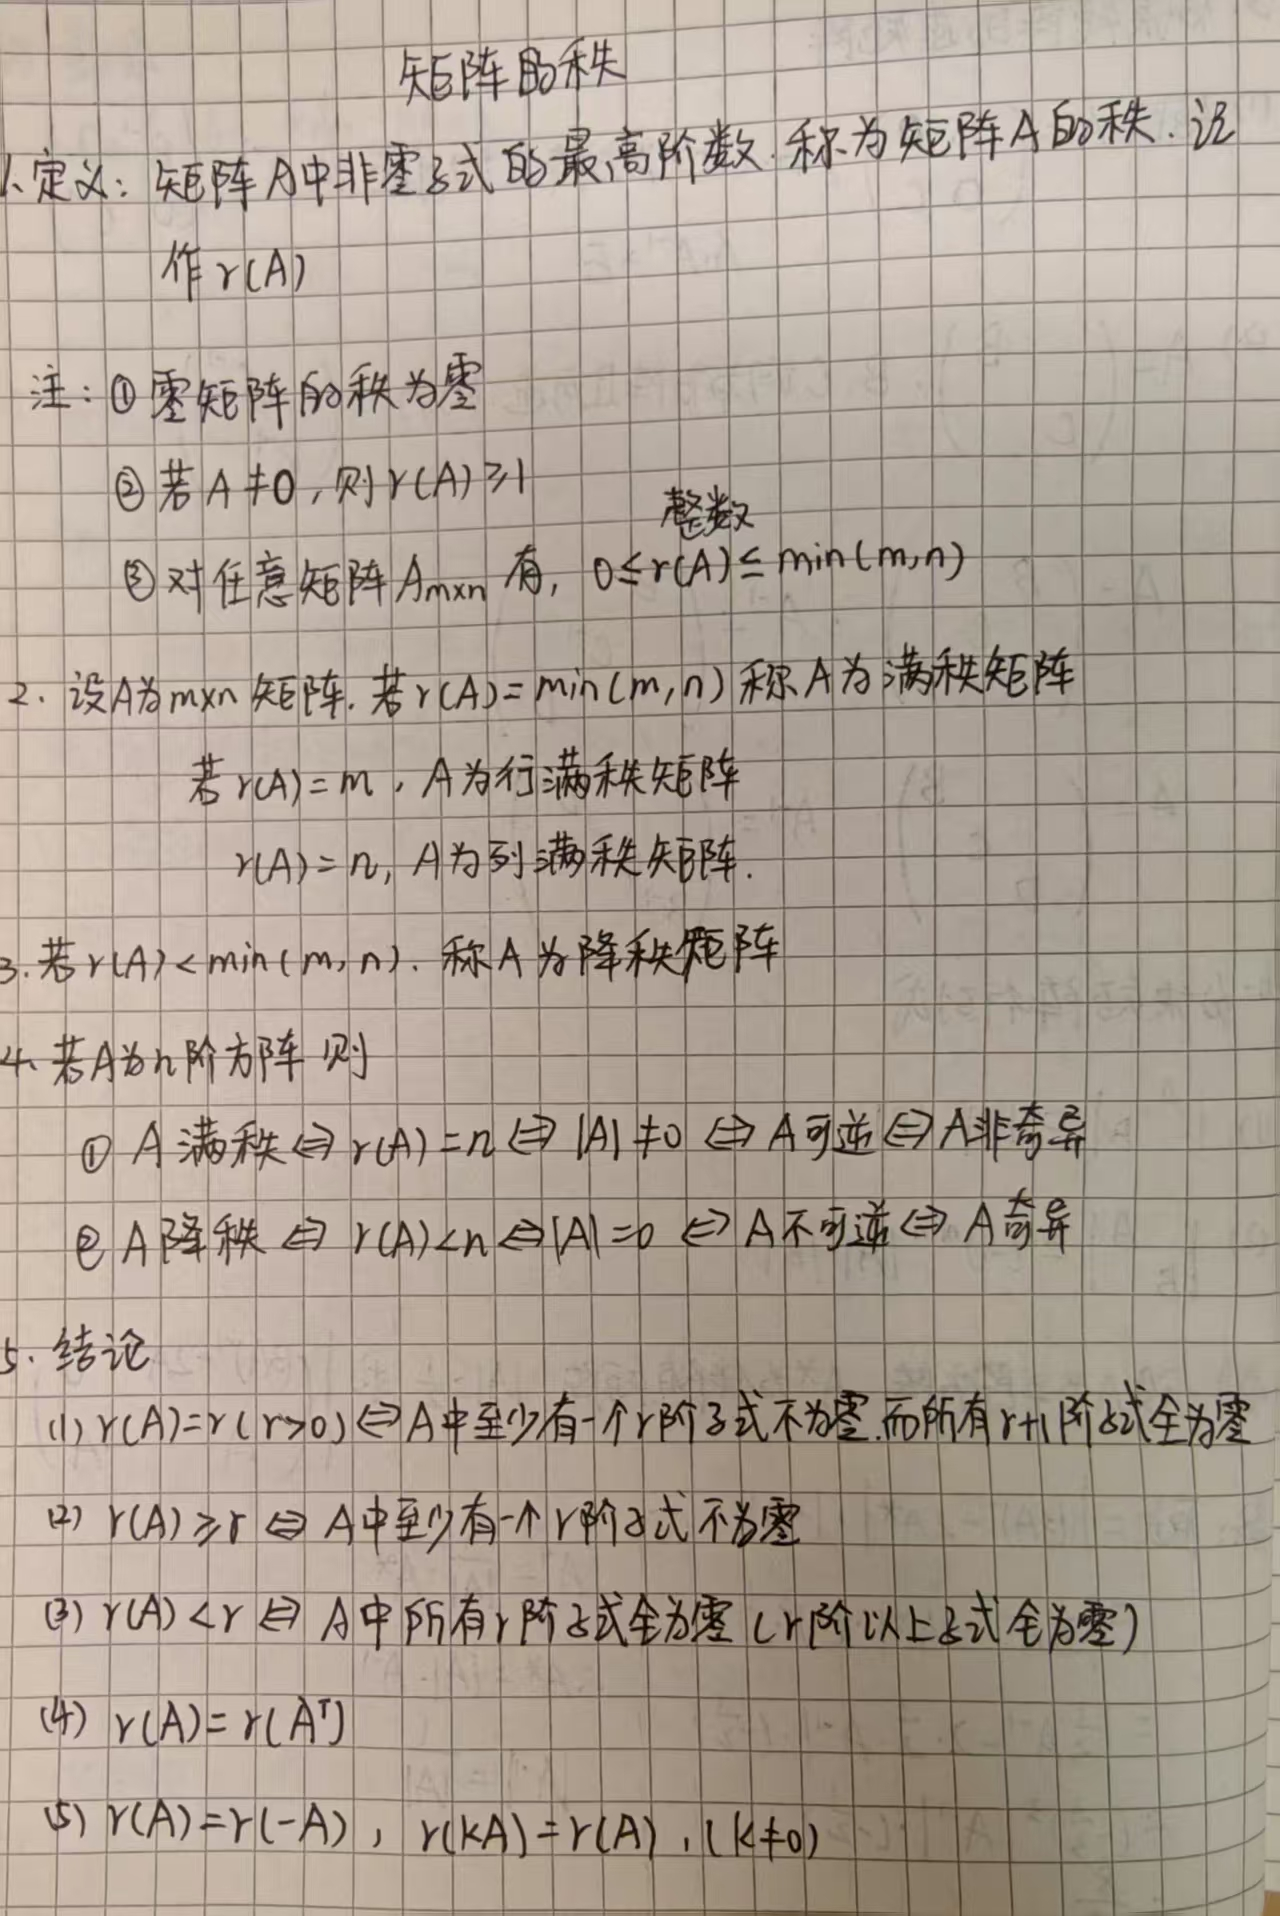 矩阵的秩
1、定义：矩阵A中非零子式的最高阶数.称为矩阵A的秩.记
作r(A)
注：① 零矩阵的秩为零
② 若A≠0,则r(A)≥1
整数
③ 对任意矩阵Am×n有, 0≤r(A)≤min(m,n)
2. 设A为m×n矩阵.若r(A)=min(m,n)称A为满秩矩阵
若r(A)=m,A为行满秩矩阵
r(A)=n,A为列满秩矩阵.
3.若r(A)<min(m,n).称A为降秩矩阵
4、若A为n阶方阵则
① A满秩⇔r(A)=n⇔|A|≠0⇔A可逆⇔A非奇异
② A降秩⇔r(A)<n⇔|A|=0⇔A不可逆⇔A奇异
5.结论
(1) r(A)=r(r>0)⇔A中至少有一个r阶子式不为零.而所有r+1阶子式全为零
(2) r(A)≥r⇔A中至少有一个r阶子式不为零
(3) r(A)<r⇔A中所有r阶子式全为零(r阶以上子式全为零)
(4) r(A)=r(Aᵀ)
(5) r(A)=r(-A), r(kA)=r(A),(k≠0)